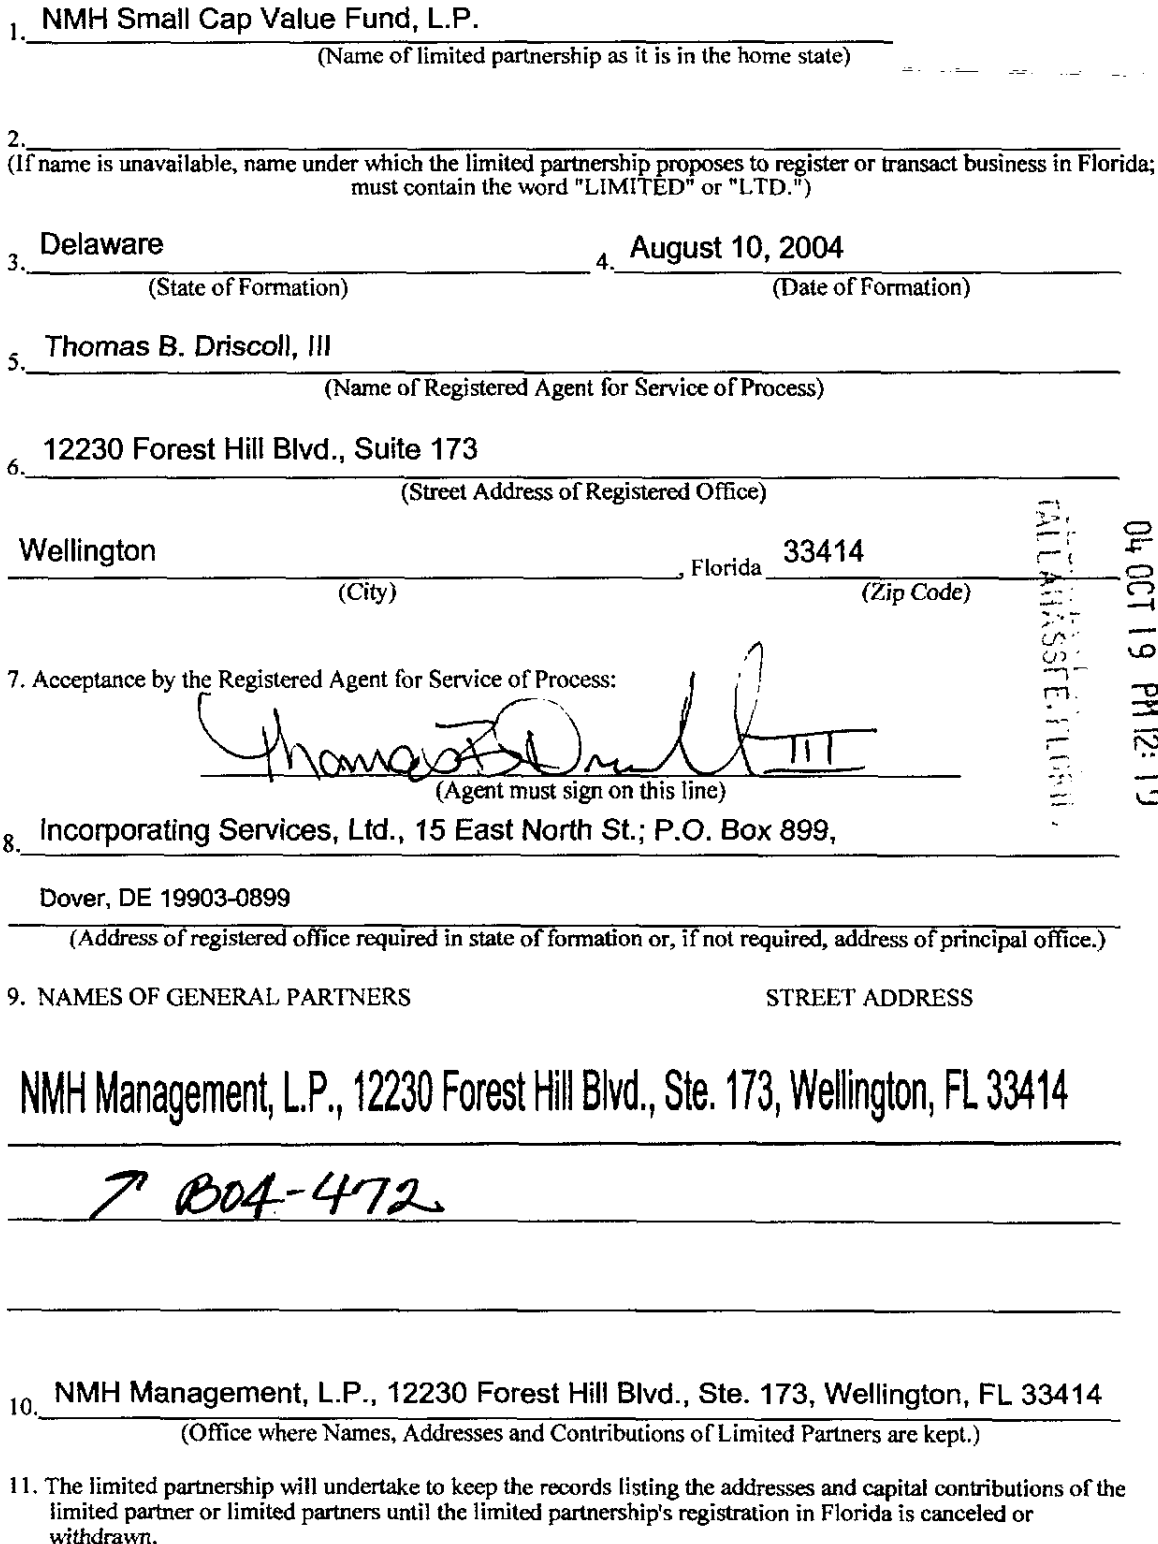 1. NMH Small Cap Value Fund, L.P.
(Name of limited partnership as it is in the home state)
2.
(If name is unavailable, name under which the limited partnership proposes to register or transact business in Florida;
must contain the word "LIMITED" or "LTD.")
3. Delaware 4. August 10, 2004
(State of Formation) (Date of Formation)
5. Thomas B. Driscoll, III
(Name of Registered Agent for Service of Process)
6. 12230 Forest Hill Blvd., Suite 173
(Street Address of Registered Office)
Wellington , Florida 33414
(City) (Zip Code)
04 OCT 19 PM 12: 19
TALLAHASSEE, FLORIDA
7. Acceptance by the Registered Agent for Service of Process:
Thomas B Driscoll III
(Agent must sign on this line)
8. Incorporating Services, Ltd., 15 East North St.; P.O. Box 899,
Dover, DE 19903-0899
(Address of registered office required in state of formation or, if not required, address of principal office.)
9. NAMES OF GENERAL PARTNERS STREET ADDRESS
NMH Management, L.P., 12230 Forest Hill Blvd., Ste. 173, Wellington, FL 33414
↗ B04-472
10. NMH Management, L.P., 12230 Forest Hill Blvd., Ste. 173, Wellington, FL 33414
(Office where Names, Addresses and Contributions of Limited Partners are kept.)
11. The limited partnership will undertake to keep the records listing the addresses and capital contributions of the
limited partner or limited partners until the limited partnership's registration in Florida is canceled or
withdrawn.